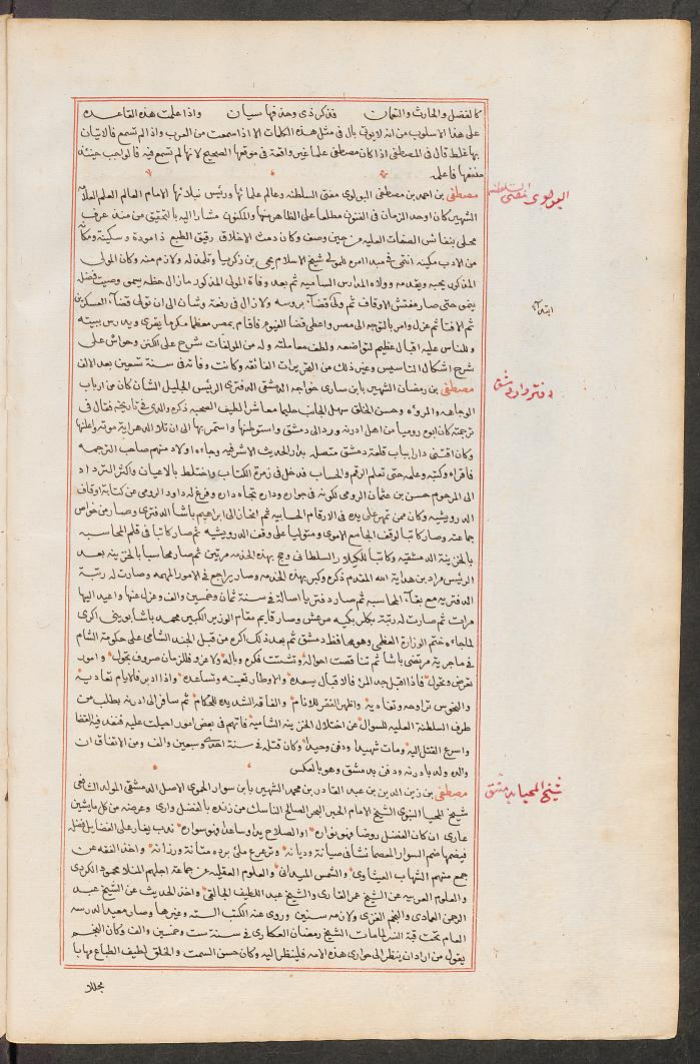 كالفضل والحارث والنعمان فذكر ذي وحذفها سيان واذا علمت هذه القاعده
على هذا الاسلوب من انه لا يؤتى بال في مثل هذه الكلمات الا اذا سمعت من العرب واذا لم تسمع فالاتيان
بها غلط قال في المصطفى اذا كان مصطفى علما غير واقعة في موقعها الصحيح لانها لم تسمع فيه فالواجب حينئذ
حذفها فاعلم
مصطفى بن احمد بن مصطفى البولوي مفتى السلطنه وعالم علمائها ورئيس نبلائها الامام العالم العلم
الشهير كان اوحد الزمان في الفنون مطلعا على الظاهر منها والمكنون مشارا اليه بالتحقيق من منذ عرف
محلى بنفائس الصفات العليه من حين وصف وكان دمث الاخلاق رقيق الطبع ذا مودة وسكينة ومكانه
من الادب مكينه انتمى في مبدا امره الى شيخ الاسلام يحيى بن زكريا وتلمذ له ولازم منه وكان المولى
المذكور يحبه ويقدمه وولاه المدارس الساميه ثم بعد وفاة المولى المذكور مازال حظه يسمى وصيت فضله
ينمى حتى صار مفتش الاوقاف ثم ولى قضاء بروسه ولا زال في رفعة وشان الى ان تولى قضاء العسكرين
ثم الافتا ثم عزل وامر بالتوجه الى مصر واعطى قضا الفيوم فاقام بمصر معظما مكرما يقرى ويدرس ببيته
وللناس عليه اقبال عظيم لتواضعه ولطف معاملته وله من المولفات شرح على الكنز وحواش على
شرح اشكال التاسيس وغير ذلك من التحريرات الفائقه وكانت وفاته في سنة تسعين بعد الالف
مصطفى بن رمضان الشهير بابن ساري خواجه الدمشقي الدفتري الرئيس الجليل الشان كان من ارباب
الوجاهه والمروه وحسن الخلق سهل الجانب حليما معاشرا لطيف الصحبه ذكره والدي في تاريخه فقال في
ترجمته كان ابوه روميا من اهل ادرنه ورد الى دمشق واستوطنها واستمر بها الى ان تلا الدهر اية موته واعلنها
وكان اقتنى دارا بباب قلعة دمشق متصلة بدار الحديث الاشرفيه وجاءه اولاد منهم صاحب الترجمه
فاقراه وكتبه وعلمه حتى تعلم الرقم والحساب فدخل في زمرة الكتاب واختلط بالاعيان واكثر الترداد
الى المرحوم حسن بن عثمان الرومي لكونه في جواره وداره تجاه داره وفرغ له داود الرومي عن كتابة اوقاف
الدرويشيه وكان ممن تمهر على يده في الارقام الحسابيه ثم انحاز الى ابراهيم باشا الدفتري وصار من خواص
جماعته وصار كاتبا لوقف الجامع الاموي ومتوليا على وقف الدرويشيه ثم صار كاتبا في قلم المحاسبه
بالخزينة الدمشقيه وكاتبا للكيلار السلطاني وحج بهذه الخدمه مرتين ثم صار محاسبا بالخزينه بعد
الرئيس مراد بن هداية الله المقدم ذكره وكبر بهذه الخدمه وصار يراجع في الامور المهمه وصارت له رتبة
الدفتريه مع بقاء المحاسبه ثم صار دفتريا اصالة في سنة ثمان وخمسين والف وعزل عنها واعيد اليها
مرات ثم صارت له رتبة بكلربكيه مرعش وصار قايم مقام الوزير الكبير محمد باشا بويني اكري
لما جاءه ختم الوزارة العظمى وهو محافظ دمشق ثم بعد ذلك اكره من قبل الجند الشامي على حكومة الشام
في ماجرية مرتضى باشا ثم تناقصت احواله وتشتت فكره وباله ولا غرو فللزمان صروف تحول وامور
تعرض وتحول فاذا اقبل جد المرء فالاقبال يسعده والاوطار تعينه وتساعده واذا ادبر فالايام تعاديه
والنحوس تراوحه وتغاديه واظهر الفقر للانام والفاقه الشديده للحكام ثم سافر الى ادرنه بطلب من
طرف السلطنة العليه للسوال عن اختلال الخزينه الشاميه فاتهم في بعض امور احيلت عليه فنفذ فيه القضا
واسرع القتل اليه ومات شهيدا ودفن وحيدا وكان قتله في سنة احدى وسبعين والف ومن الاتفاق ان
والده ولد بادرنه ودفن بدمشق وهو بالعكس
مصطفى بن زين الدين بن عبد القادر بن محمد الشهير بابن سوار الحموي الاصل الدمشقي المولد الشافعي
شيخ المحيا النبوي الشيخ الامام الحبر البحر الصالح الناسك من زنده بالفضل واري وعرضه من كل ما يشين
عاري ان كان الفضل روضا فهو نواره او الصلاح يدا وساعدا فهو سواره
جمع منهم الشهاب العيثاوي والشمس الميداني والعلوم العقليه عن جماعة اجلهم المنلا محمود الكردي
والعلوم العربيه عن الشيخ عمر القاري والشيخ عبد اللطيف الجالقي واخذ الحديث عن الشيخ عبد
الرحمن العمادي والنجم الغزي ولازمه سنين وروى عنه الكتب السته وغيرها وصار معيدا لدرسه
العام تحت قبة النسر لما مات الشيخ رمضان العكاري في سنة ست وخمسين والف وكان النجم
يقول من اراد ان ينظر الى حواري هذه الامه فلينظر اليه وكان حسن السمت والخلق لطيف الطباع مهابا
مجللا
البولوي مفتى السلطنه
دفتردار دمشق
شيخ المحيا بدمشق